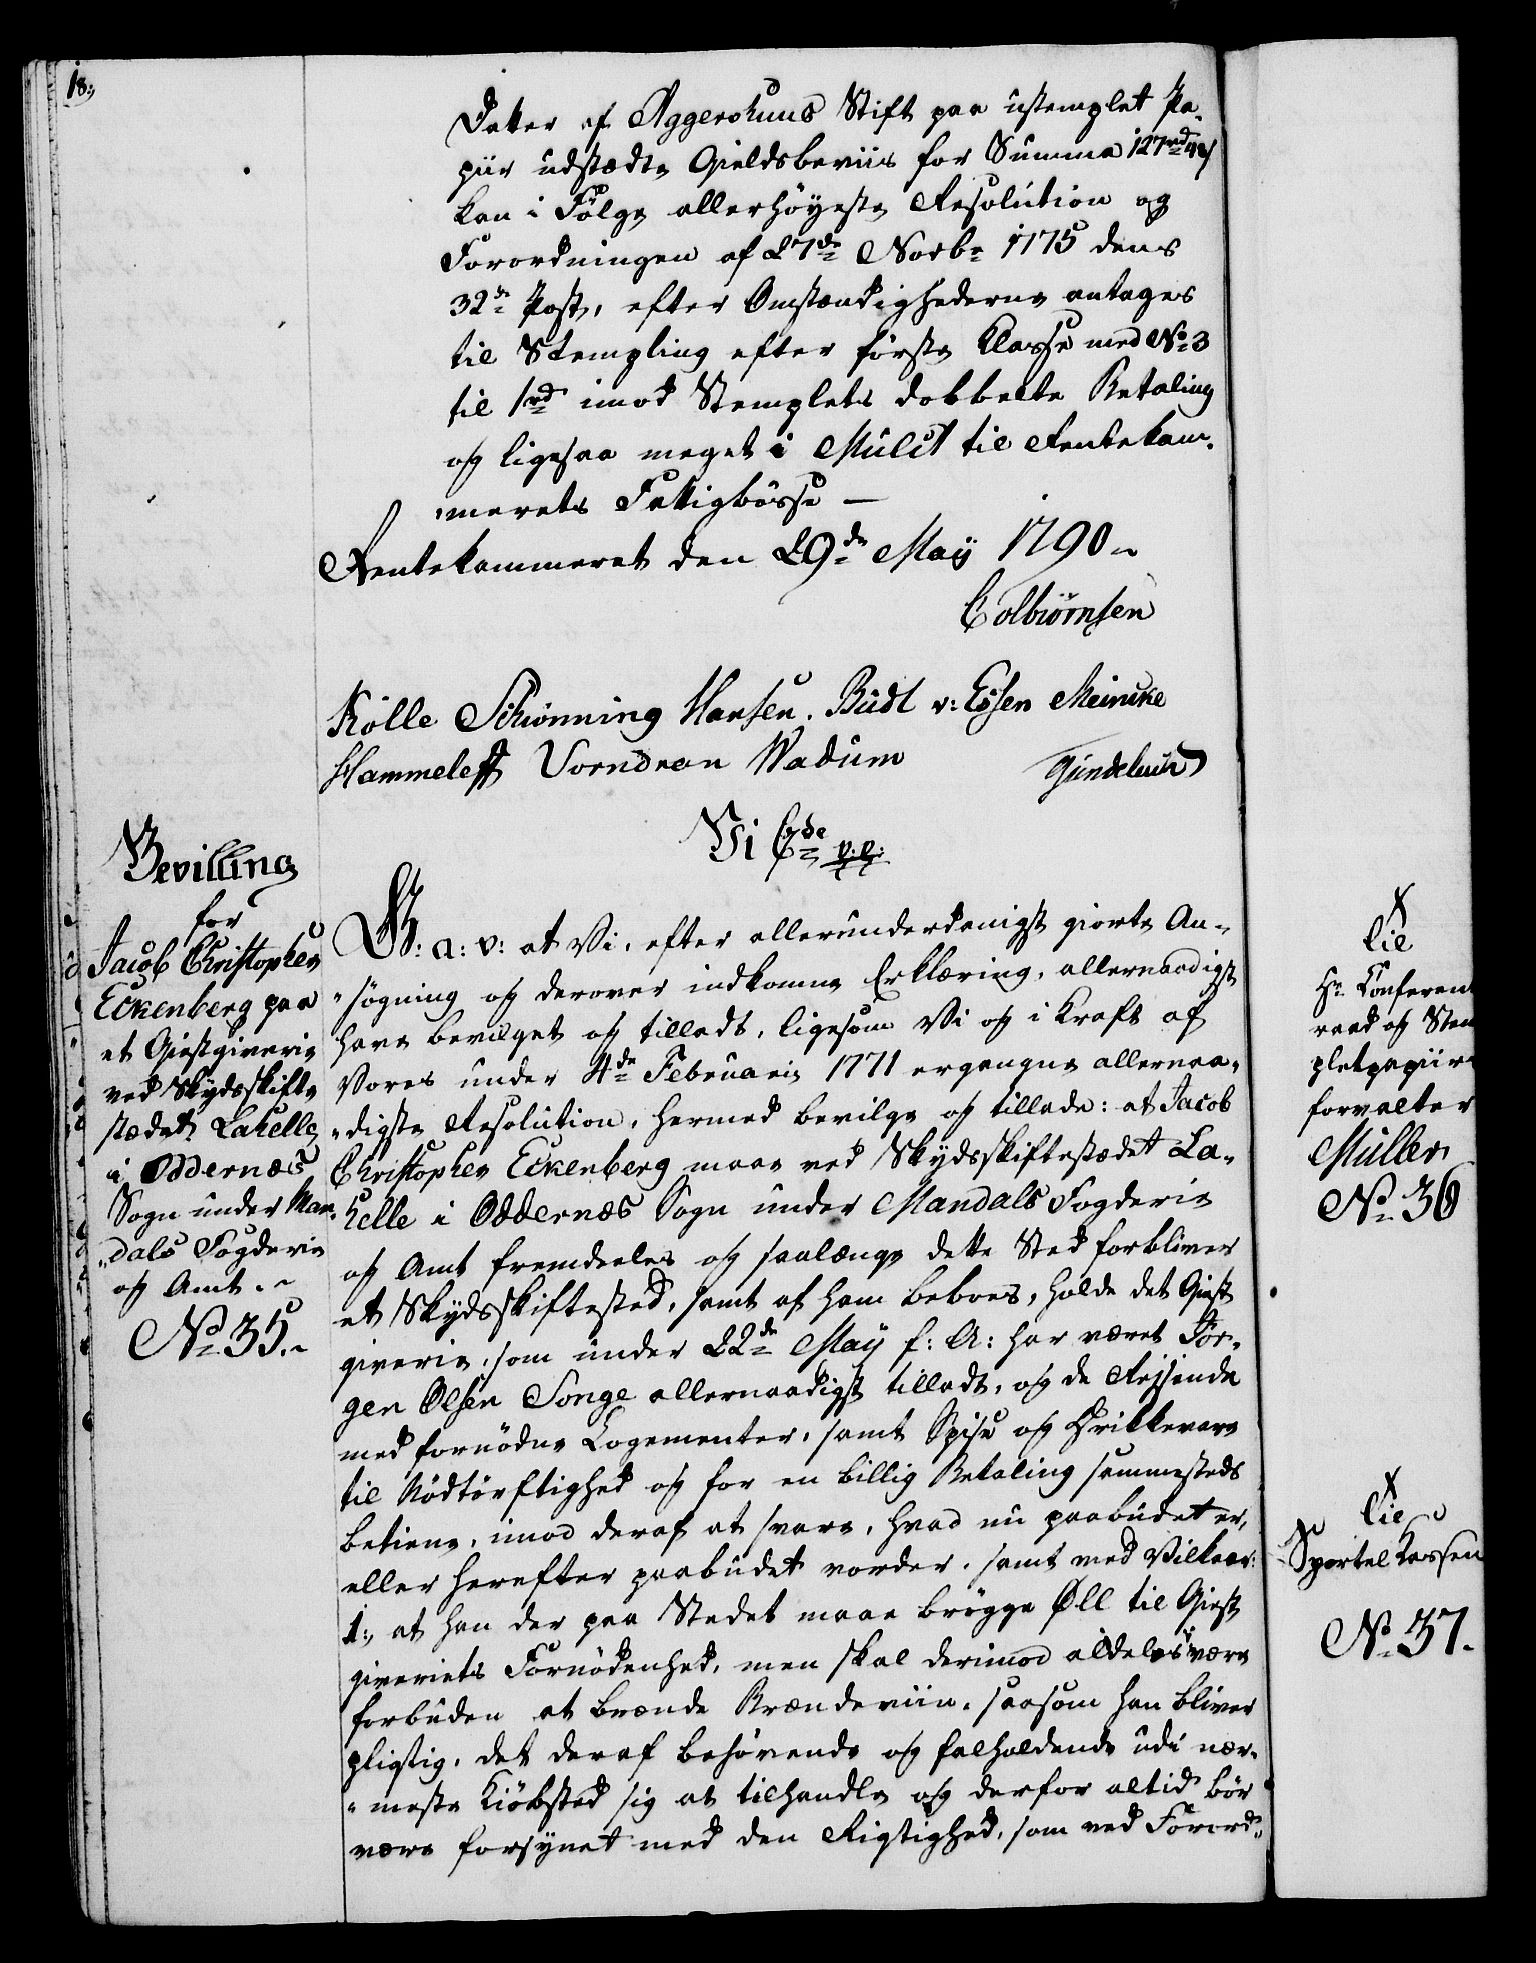 18.
Datter af Aggershuus Stift paa ustemplet Pa-
piir udstædte Gieldsbeviis for Summa 127rd
kan i Følge allerhöyeste Resolution og
Forordningen af 27de Novbr 1775 dens
32te Post, efter Omstændighederne antages
til Stempling efter første Classe med No 3
til 1rd imod Stemplets dobbelte Betaling
og ligesaa meget i Mulct til Rentekam-
merets Fattigbösse —
Rentekammeret den 29de May 1790
Colbiørnsen
Kölle Schiönning Hansen. Budt v: Essen Meincke
Hammeleff Vorndran Wadum Gundelach
Bevilling
for
Jacob Christopher
Eckenberg paa
et Giestgiverie
ved Skydsskifte
stædet Lahelle
i Oddernæs
Sogn under Man-
dals Fogderie
og Amt.
No 35.
Vi C7de p.p.
G: a: v: at Vi, efter allerunderdanigst giorte An-
søgning og derover indkomne Erklæring, allernaadigst
have bevilget og tilladt, ligesom Vi og i Kraft af
Vores under 4de Februarii 1771 ergangne allernaa-
digste Resolution, hermed bevilge og tillade: at Jacob
Christopher Eckenberg maae ved Skydsskiftestædet La-
helle i Oddernæs Sogn under Mandals Fogderie
og Amt fremdeeles og saalænge dette Sted forbliver
et Skydsskiftested, samt af ham beboes, holde det Giest
giverie, som under 22de May f: A: har været Jör-
gen Olsen Songe allernaadigst tilladt, og de Reisende
med fornödne Logementer, samt Spise og Drikkevare
til Nödtörftighed og for en billig Betaling sammesteds
betiene, imod deraf at svare, hvad nu paabudet er,
eller herefter paabudet vorder, samt med Vilkaar:
1., at han der paa Stedet maae brögge Øll til Giest
giveriets Fornödenhed, men skal derimod aldeles være
forbuden at brænde Brændeviin, saasom han bliver
pligtig, det deraf behövende og falholdende udi nær-
meste Kiöbsted sig at tilhandle og derfor altid bör
være forsynet med den Rigtighed, som ved Forord-
X
til
Hr Conferen
raad og Stem
pletpapiir
forvalter
Müller
No 36
X
til
Sportel Kassen
No 37.